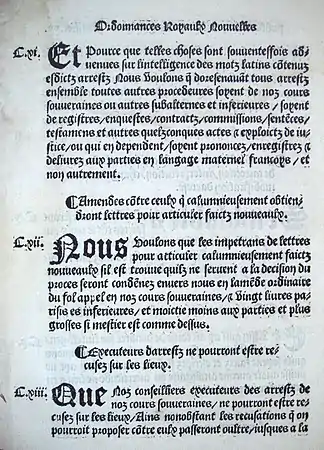 Ordonnances Royaulx Nouvelles
C.xi. Et Pource que telles choses sont souuentesfois ad-
uenues sur lintelligence des motz latins cōtenuz
esdictz arrestz Nous Voulons q̄ doresenauāt tous arrestz
ensemble toutes autres procedeures soyent de noz cours
souueraines ou autres subalternes et inferieures / soyent
de registres / enquestes / contractz / commissions / sentēces /
testamens et autres quelzconques actes & exploictz de iu-
stice / ou qui en dependent / soyent prononcez / enregistrez &
deliurez aux parties en langage maternel francoys / et
non autrement.
¶ Amendes cōtre ceulx q̄ calumnieusement obtien-
dront lettres pour articuler faictz nouueaulx.
C.xii. Nous Voulons que les impetrans de lettres
pour articuler calumnieusement faictz
nouueaulx sil est trouue quilz ne seruent a la decision du
proces seront condēnez enuers nous en lamēde ordinaire
du fol appel en noz cours souueraines / & Vingt liures pa-
risis es inferieures / et moictie moins aux parties et plus
grosses si mestier est comme dessus.
¶ Executeurs darrestz ne pourront estre re-
cusez sur les lieux.
C.xiii. Que Noz conseilliers executeurs des arrestz de
noz cours souueraines / ne pourront estre re-
cusez sur les lieux / Ains nonobstant les recusations q̄ on
pourroit proposer cōtre eulx passeront oultre / iusques a la